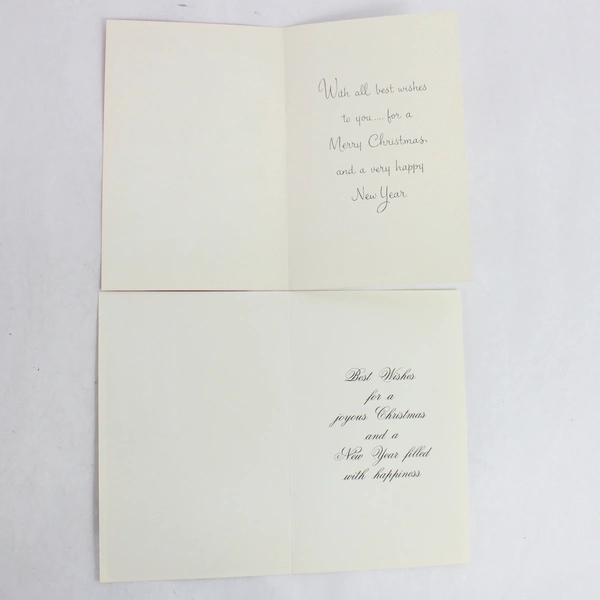 With all best wishes
to you.... for a
Merry Christmas,
and a very happy
New Year
Best Wishes
for a
joyous Christmas
and a
New Year filled
with happiness